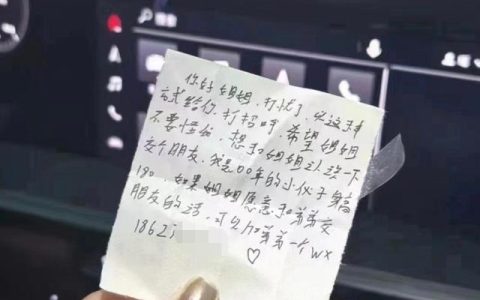 你好姐姐，打扰了，以这种
方式给你打招呼，希望姐姐
不要怪如，想和姐姐认识一下
交个朋友，我是00年的小伙子身高
180，如果姐姐愿意和弟弟交
朋友的话，可以加弟弟一个WX
1862